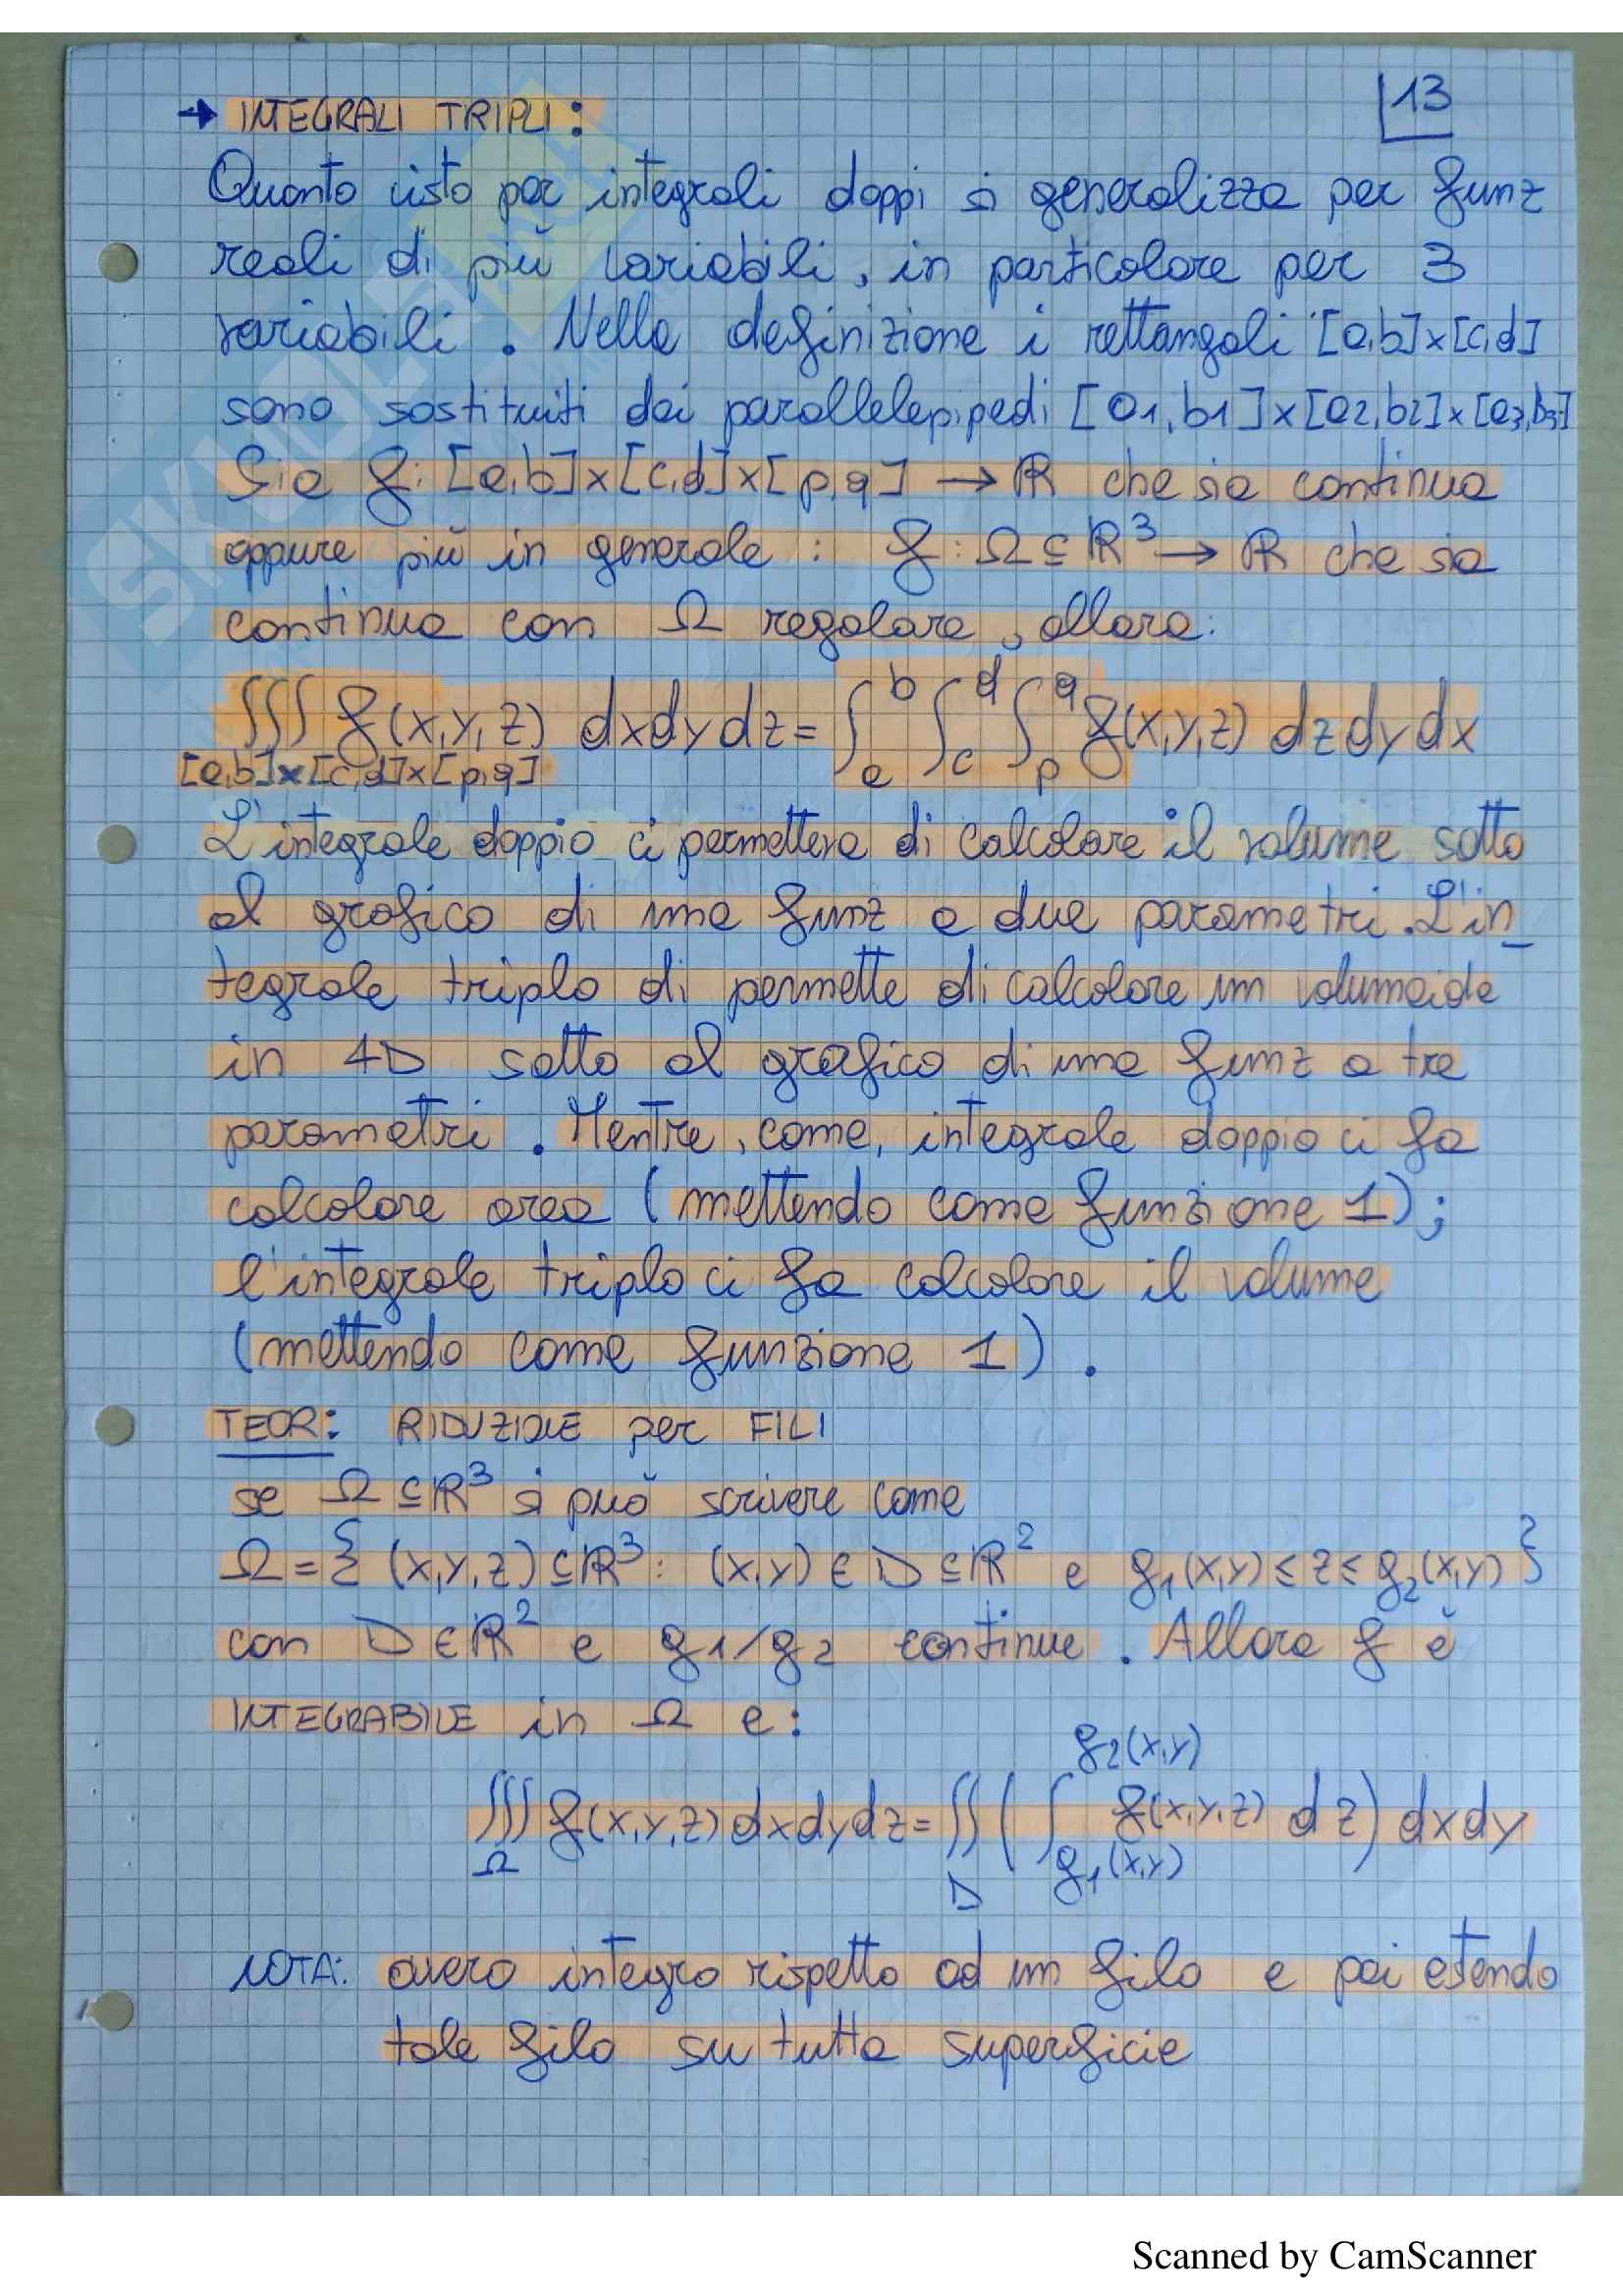 13
→ INTEGRALI TRIPLI:
Quanto visto per integrali doppi si generalizza per funz
reali di più variabili, in particolare per 3
variabili. Nella definizione i rettangoli [a,b]x[c,d]
sono sostituiti dai parallelepipedi [a1,b1]x[a2,b2]x[a3,b3]
Sia f: [a,b]x[c,d]x[p,q] → ℝ che sia continua
oppure più in generale: f: Ω ⊆ ℝ³ → ℝ che sia
continua con Ω regolare, allora:
∭ f(x,y,z) dxdydz = ∫_a^b ∫_c^d ∫_p^q f(x,y,z) dzdydx
[a,b]x[c,d]x[p,q]
L'integrale doppio ci permetteva di calcolare il volume sotto
al grafico di una funz a due parametri. L'in_
tegrale triplo di permette di calcolare un volumoide
in 4D sotto al grafico di una funz a tre
parametri. Mentre, come, integrale doppio ci fa
calcolare area (mettendo come funzione 1);
l'integrale triplo ci fa calcolare il volume
(mettendo come funzione 1).
TEOR: RIDUZIONE per FILI
se Ω ⊆ ℝ³ si può scrivere come
Ω = { (x,y,z) ⊆ ℝ³: (x,y) ∈ D ⊆ ℝ² e g₁(x,y) ≤ z ≤ g₂(x,y) }
con D ∈ ℝ² e g1/g2 continue. Allora f è
INTEGRABILE in Ω e:
∭_Ω f(x,y,z) dxdydz = ∬_D ( ∫_{g₁(x,y)}^{g2(x,y)} f(x,y,z) dz ) dxdy
NOTA: ovvero integro rispetto ad un filo e poi estendo
tale filo su tutta superficie
Scanned by CamScanner